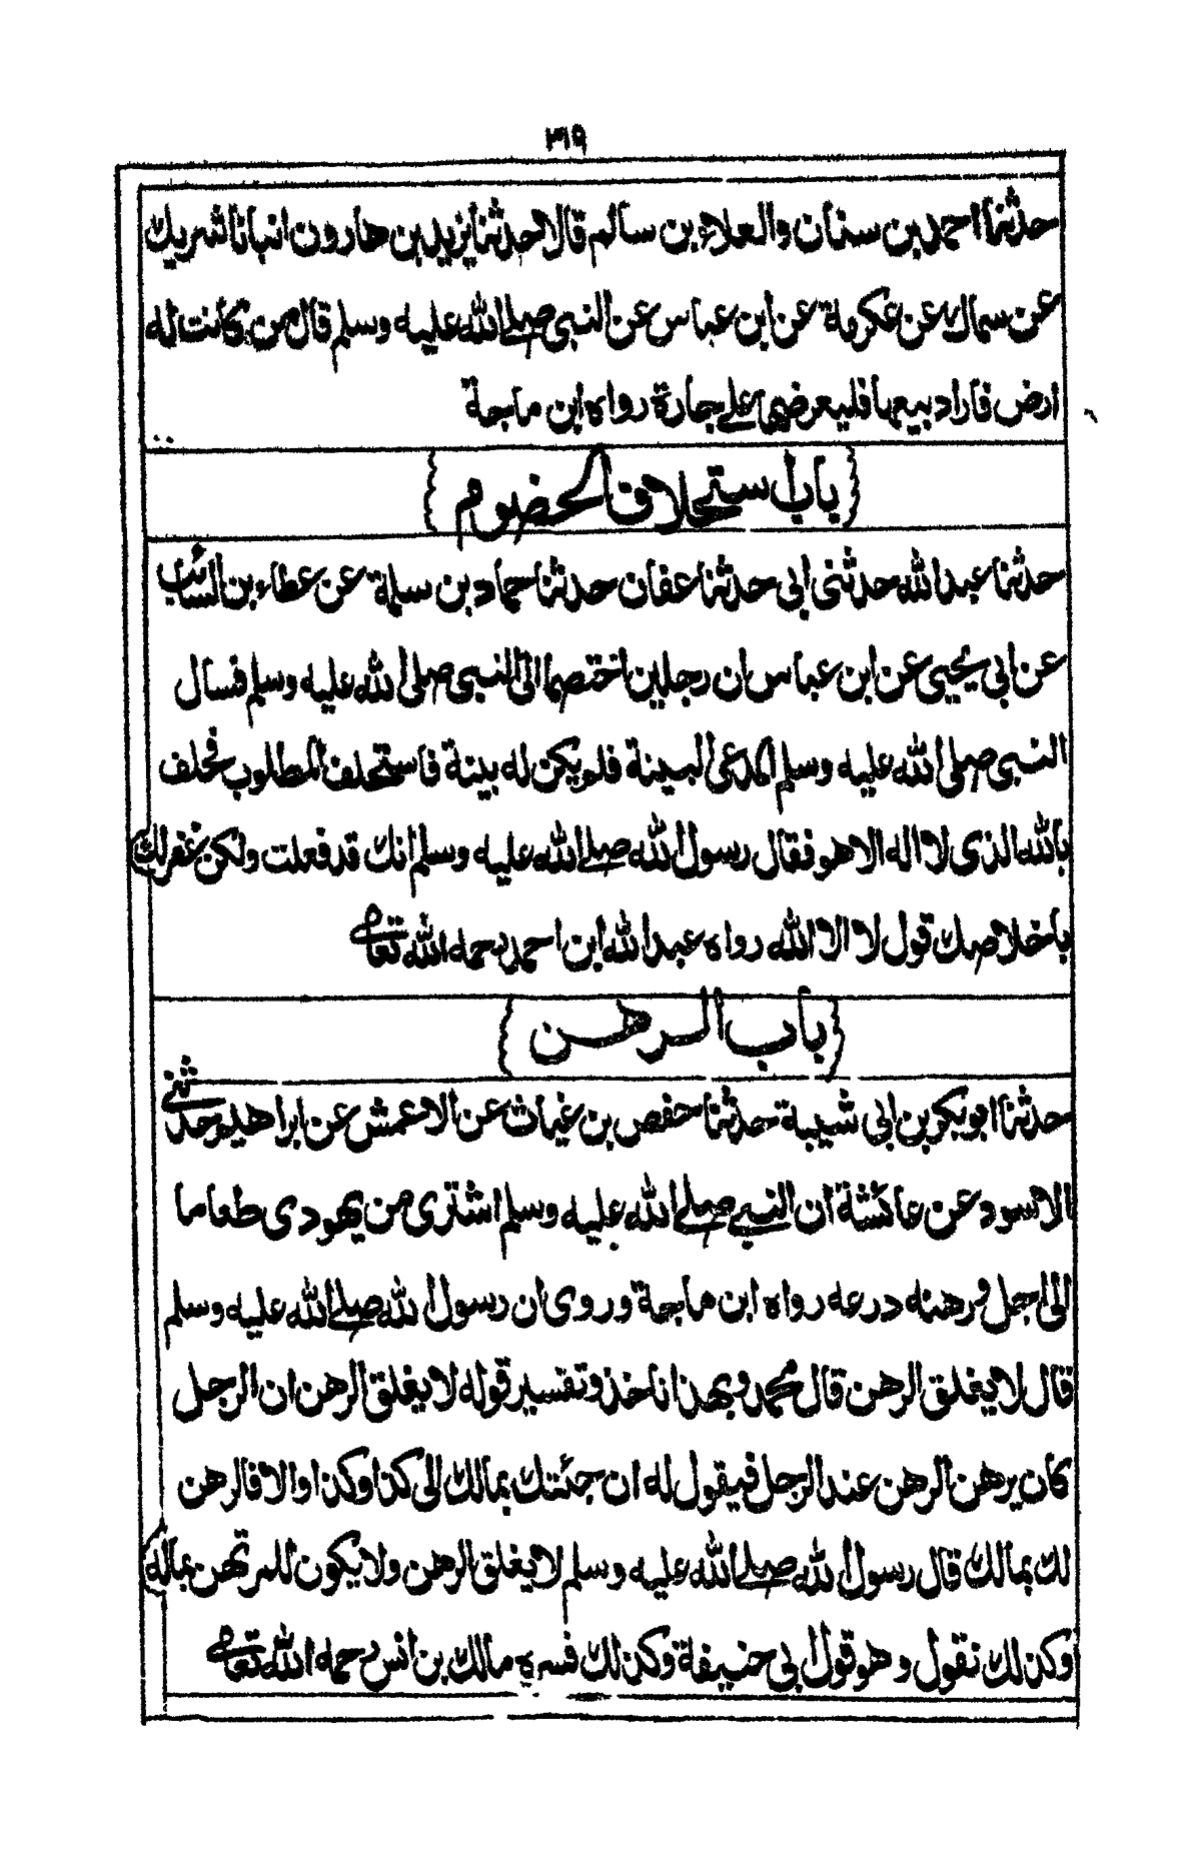 ٣١٩
حدثنا احمد بن سنان والعلاء بن سالم قالا حدثنا يزيد بن هارون انبانا شريك
عن سماك عن عكرمة عن ابن عباس عن النبي صلى الله عليه وسلم قال من كانت له
ارض فاراد بيعها فليعرضها على جارة رواه ابن ماجة
باب استحلاف الخصوم
حدثنا عبدالله حدثنى ابى حدثنا عفان حدثنا حماد بن سلمة عن عطاء بن السائب
عن ابى يحيى عن ابن عباس ان رجلين اختصما الى النبى صلى الله عليه وسلم فسال
النبى صلى الله عليه وسلم المدعى البينة فلم يكن له بينة فاستحلف المطلوب فحلف
بالله الذى لا اله الا هو فقال رسول الله صلى الله عليه وسلم انك قد فعلت ولكن غفر لك
باخلاصك قول لا الا الله رواه عبدالله ابن احمد رحمه الله تعالى
باب الرهن
حدثنا ابو بكر بن ابى شيبة حدثنا حفص بن غياث عن الاعمش عن ابراهيم حدثنى
الاسود عن عائشة ان النبي صلى الله عليه وسلم اشترى من يهودى طعاما
الى اجل ورهنه درعه رواه ابن ماجة وروى ان رسول الله صلى الله عليه وسلم
قال لا يغلق الرهن قال محمد وبهذا ناخذ وتفسير قوله لا يغلق الرهن ان الرجل
كان يرهن الرهن عند الرجل فيقول له ان جئتك بمالك الى كذا وكذا والا فالرهن
لك بمالك قال رسول الله صلى الله عليه وسلم لا يغلق الرهن ولا يكون للمرتهن بماله
وكذلك نقول وهو قول ابى حنيفة وكذلك فسره مالك بن انس رحمه الله تعالى